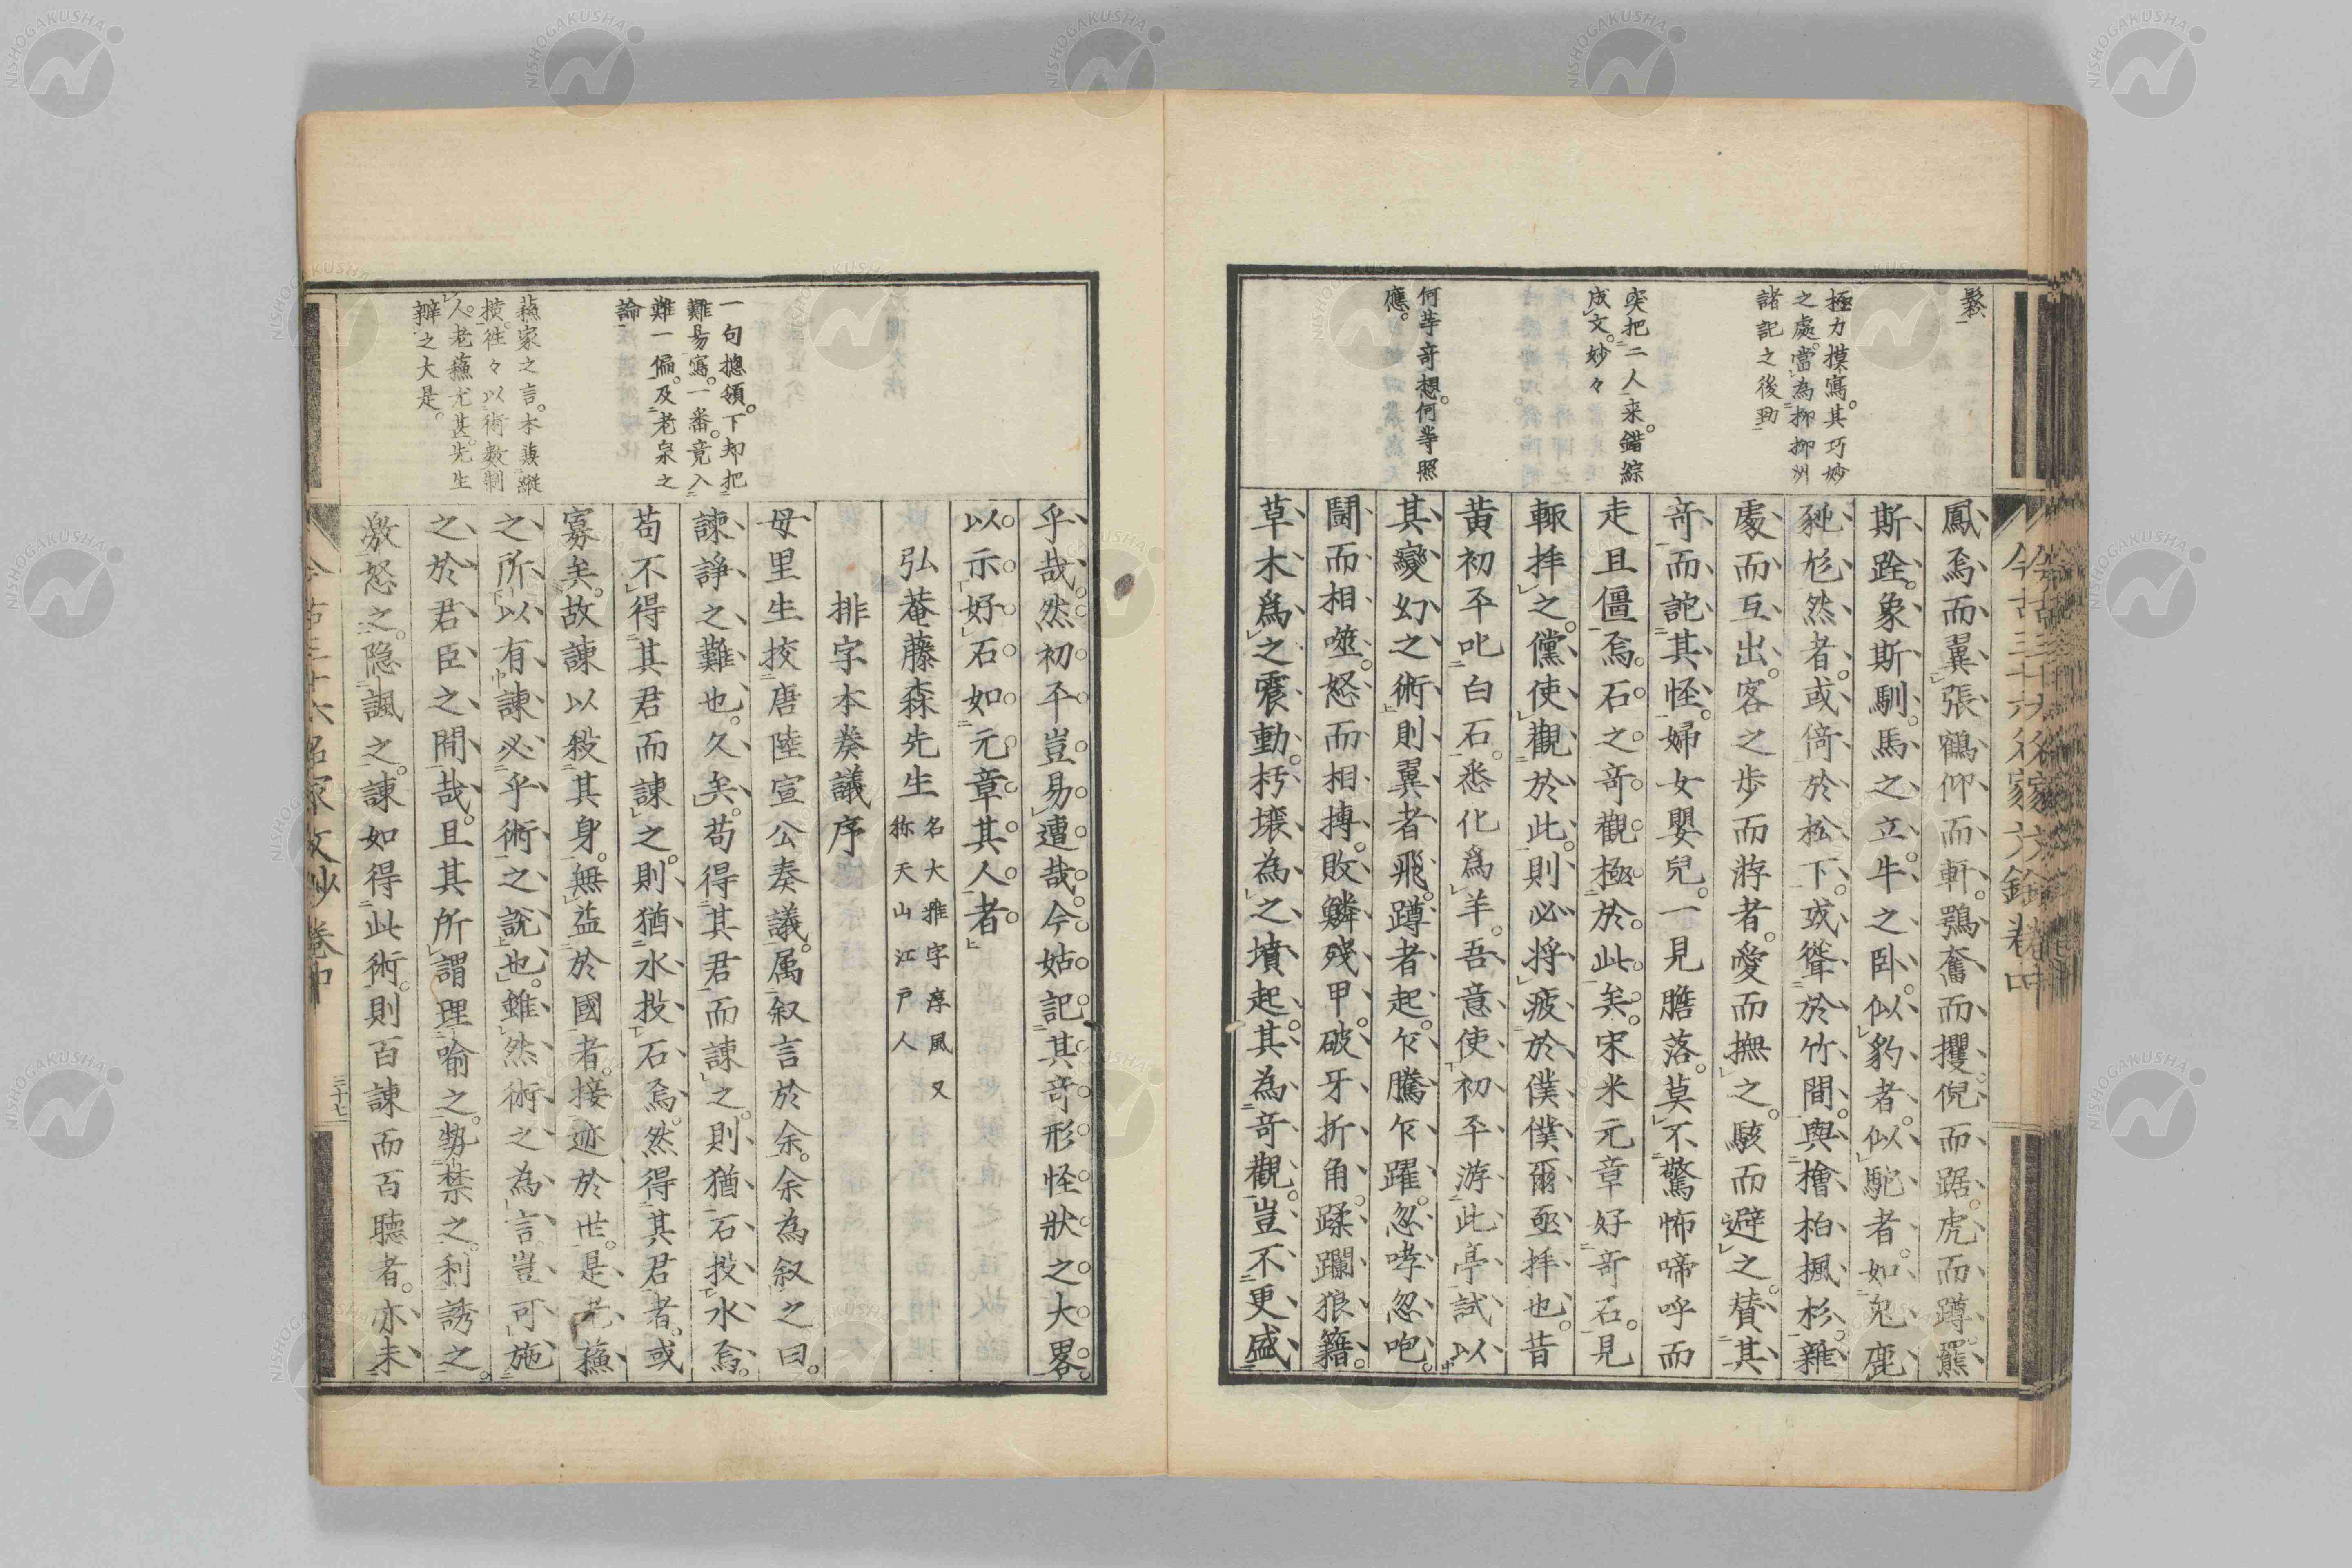 鬆
極力摸寫。其巧妙
之處。當為柳柳州
諸記之後勁
突把二人来。錯綜
成文。妙々
何䓁竒想。何䓁照
應。
鳳焉而翼張。鶴仰而軒。鶚奮而攫。倪而踞。虎而蹲。羆
斯跧。象斯馴。馬之立。牛之卧。似豹者。似駝者。如兔鹿
豵尨然者。或倚於松下。或聳於竹間。與檜柏楓杉。雜
處而互出。客之歩而游者。愛而撫之。駭而避之。賛其
竒而詑其怪。婦女嬰兒。一見膽落。莫不驚怖啼呼而
走且僵焉。石之竒觀極於此矣。宋米元章好竒石。見
輙拝之。儻使觀於此。則必將疲於僕僕爾亟拝也。昔
黄初平叱白石。悉化爲羊。吾意使初平游此亭。試以
其變幻之術。則翼者飛。蹲者起。乍騰乍躍。忽哮忽咆。
鬪而相噬。怒而相摶。敗鱗殘甲。破牙折角。蹂躙狼籍。
草木爲之震動。朽壌為之墳起。其為竒觀。豈不更盛
乎哉。然初平豈易遭哉。今姑記其竒形怪狀之大畧。
以示好石如元章其人者
弘菴藤森先生 名大雅字淳風又
称天山江戸人
排字本奏議序
母里生挍唐陸宣公奏議。属叙言於余。余為叙之曰。
諫諍之難也。久矣。苟得其君而諫之。則猶石投水焉。
苟不得其君而諫之。則猶水投石焉。然得其君者。或
寡矣。故諫以殺其身。無益於國者。接迹於世。是老蘓
之所以有諫必乎術之說也。雖然術之為言。豈可施
之於君臣之間哉。且其所謂理喻之。勢禁之。利誘之。
激怒之。隠諷之。諫如得此術。則百諫而百聴者。亦未
一句揔領。下却把
難易寫。一番。竟入
難一偏。及老泉之
論
蘓家之言。本蕪縱
横。徃々以術数制
人。老蘓尤甚。先生
辧之大是。
今古三十六名家文鈔 巻中
三十七